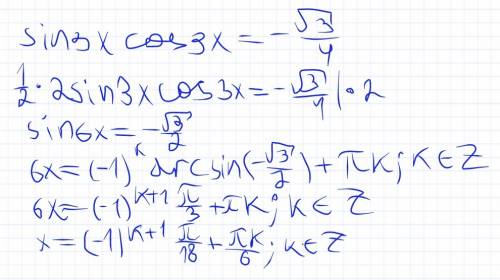 sin3x cos3x = -√3/4
1/2 · 2sin3x cos3x = -√3/4 | · 2
sin6x = -√3/2
6x = (-1)^k arcsin(-√3/2) + πk; k ∈ Z
6x = (-1)^k+1 π/3 + πk; k ∈ Z
x = (-1)^k+1 π/18 + πk/6; k ∈ Z